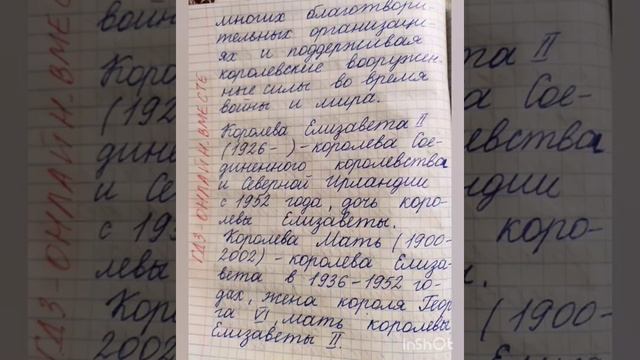 многих благотвори-
тельных организаци-
ях и поддерживая
королевские вооружен-
ные силы во время
войны и мира.
Королева Елизавета II
(1926- ) - королева Сое-
диненного королевства
и Северной Ирландии
с 1952 года, дочь коро-
левы Елизаветы.
Королева Мать (1900-
2002) - королева Елиза-
вета в 1936-1952 го-
дах, жена короля Геор
га VI мать королевы
Елизаветы II.
ГДЗ-ОНЛАЙН.ВМЕСТЕ
InShOt